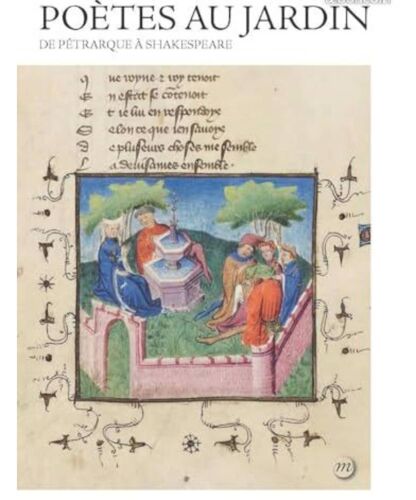 POÈTES AU JARDIN
DE PÉTRARQUE À SHAKESPEARE
Q ue royne et roy tenoit
E n estat se cõtenoit
E t ie lui en respondoye
S elon ce que ien savoye
D e plusieurs choses me semble
L a devisames ensemble.
m